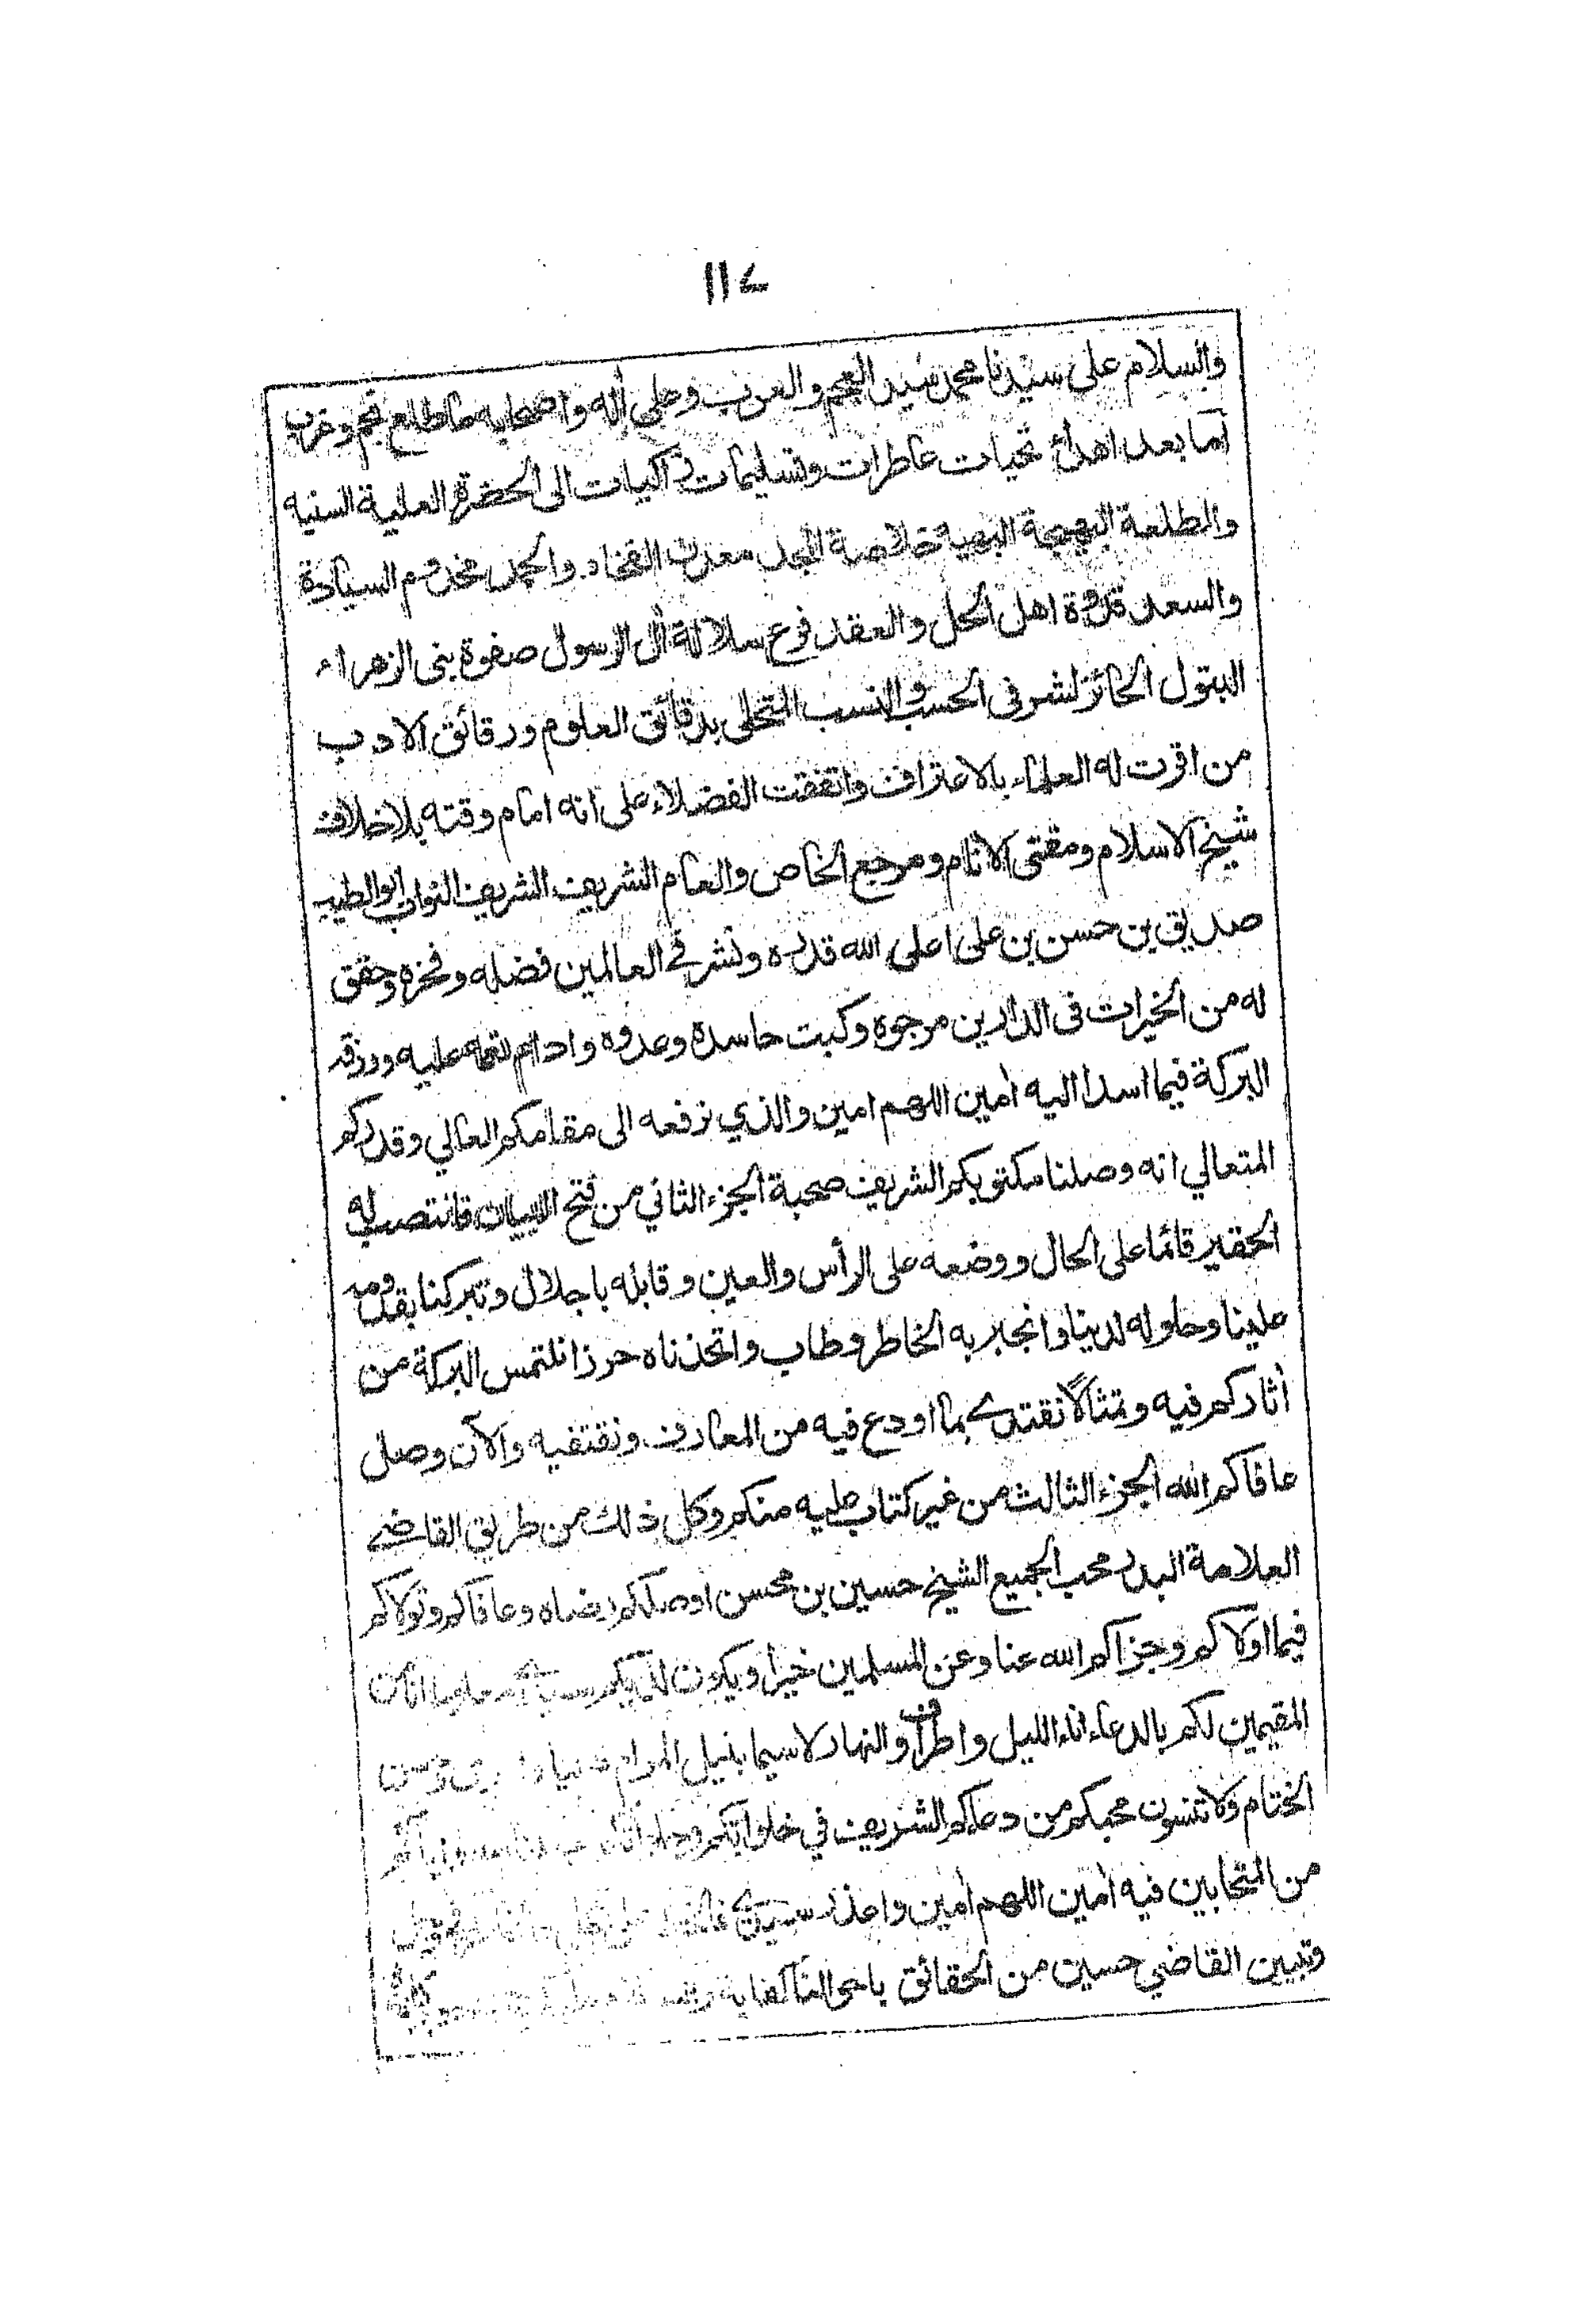 ١١٤
والسلام على سيدنا محمد سيد العجم والعرب وعلى أله واصحابه ما طلع نجم وغرب
اما بعد اهداء تحيات عاطرات وتسليمات زاكيات الى الحضرة العلية السنيه
والطلعة البهيجة البهيه خلاصة المجد معدن الفخار والحمد مخدوم السيادة
والسعد قدوة اهل الحل والعقد فرع سلالة أل الرسول صفوة بنى الزهراء
البتول الحائز لشرفى الحسب والنسب المتحلى بدقائق العلوم ورقائق الادب
من اقرت له العلماء بالاعتراف واتفقت الفضلاء على انه امام وقته بلا خلاف
شيخ الاسلام ومفتى الانام ومرجع الخاص والعام الشريف الشريف النواب ابو الطيب
صديق بن حسن بن على اعلى الله قدره ونشر فى العالمين فضله وفخره وحقق
له من الخيرات فى الدارين مرجوه وكبت حاسده وعدوه وادام نعمه عليه ورزقه
البركة فيما اسدا اليه أمين اللهم امين والذي نرفعه الى مقامكم العالي وقدركم
المتعالي انه وصلنا مكتوبكم الشريف صحبة الجزء الثاني من فتح البيان فانتصب له
الحقير قائما على الحال ووضعه على الرأس والعين وقابله باجلال وتبركنا بقدومه
علينا وحلوله لدينا وانجبر به الخاطر وطاب واتخذناه حرزا نلتمس البركة من
أثاركم فيه وتمثالا نقتدى بما اودع فيه من المعارف ونقتفيه والآن وصل
عافاكم الله الجزء الثالث من غير كتاب عليه منكم وكل ذلك من طريق القاضى
العلامة البدر محب الجميع الشيخ حسين بن محسن اوصلكم رضاه وعافاكم وتولاكم
فيما اولاكم وجزاكم الله عنا وعن المسلمين خيرا ويكون لديكم معلوما انا من
المقيمين لكم بالدعاء اناء الليل واطراف والنهار لاسيما بنيل المرام
الختام ولا تنسون محبكم من دعاءكم الشريف في خلواتكم
من المتحابين فيه أمين اللهم أمين واعذر سيدى
وتبيين القاضي حسين من الحقائق باحوالنا كفاية